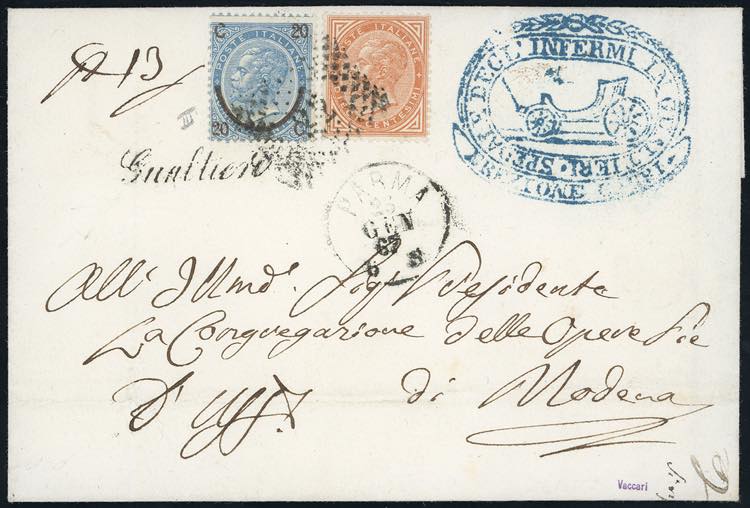 C 20
POSTE ITALIANE
20 C
POSTE ITALIANE
CENTESIMI
N 13
III
Gualtieri
DEGL' INFERMI IN GUALTIERI SPEDALE
PARMA
GEN
67
6 S
All' Illmo. Sigr Presidente
La Congregazione delle Opere Pie
D'Uff.
di Modena
Vaccari